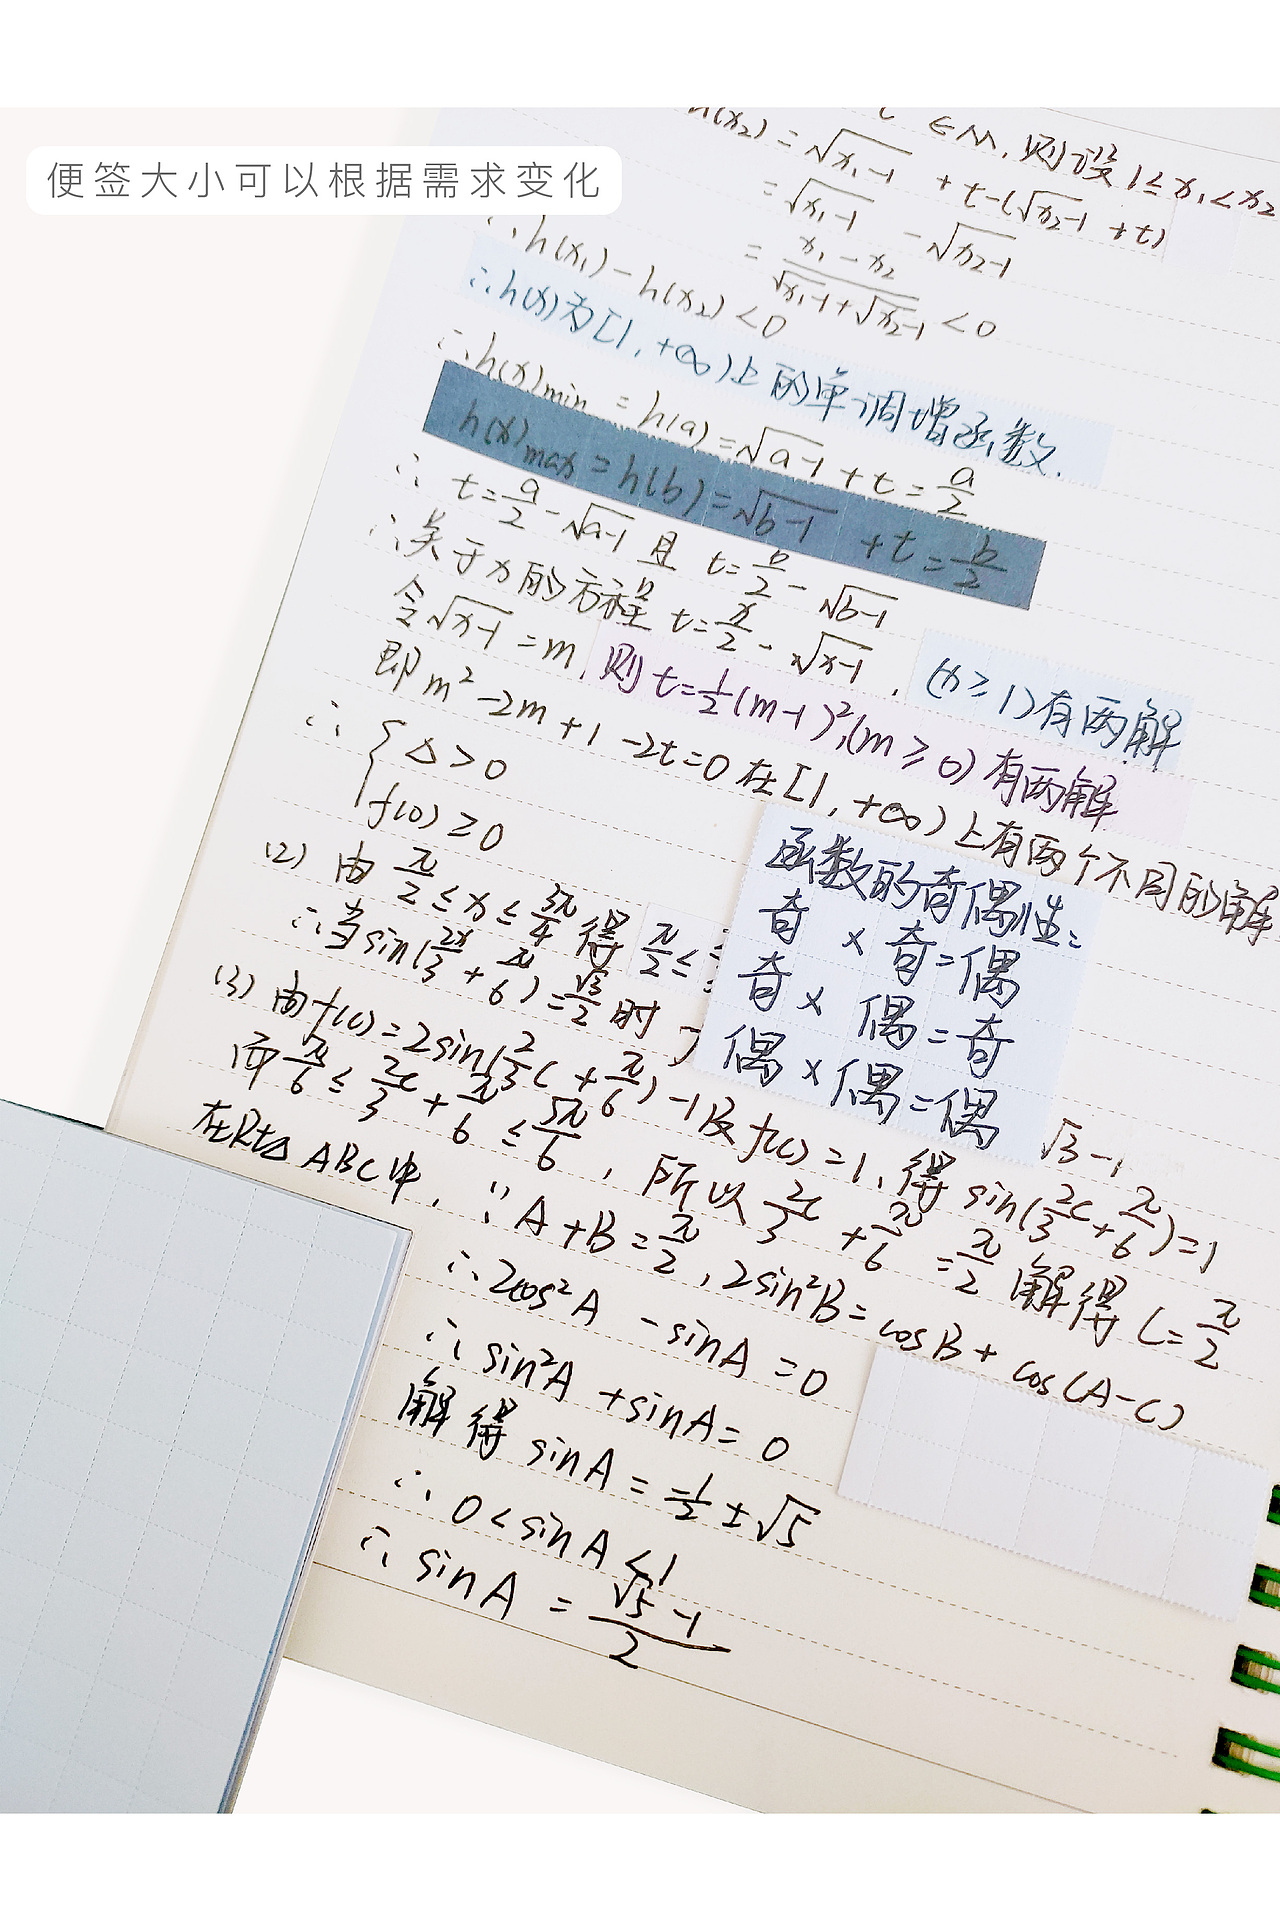 便签大小可以根据需求变化
∈M, 则设1≤x₁<x₂
h(x₂) = √x₁-1 + t-(√x₂-1 + t)
= √x₁-1 - √x₂-1
= x₁-x₂/√x₁-1+√x₂-1 < 0
∴h(x₁)-h(x₂)<0
∴h(x)为[1,+∞)上的单调增函数.
∴h(x)min = h(a)=√a-1 + t = a/2
h(x)max = h(b)=√b-1 + t = b/2
∴ t=a/2-√a-1 且 t=b/2-√b-1
∴关于x的方程 t=x/2-√x-1, (x≥1)有两解
令√x-1=m, 则t=1/2(m-1)²,(m≥0)有两解
即m²-2m+1-2t=0在[1,+∞)上有两个不同的解
∴{Δ>0
f(0)≥0
(2) 由π/2≤x≤3π/4得π/2≤
∴当sin(2x/3+π/6)=√3/2时
√3-1
(3) 由f(c)=2sin(2/3c+π/6)-1及f(c)=1,得sin(2c/3+π/6)=1
而π/6≤2c/3+π/6≤5π/6, 所以2c/3+π/6=π/2解得C=π/2
在Rt△ABC中, ∵A+B=π/2, 2sin²B=cosB+cos(A-C)
∴2cos²A-sinA=0
∴sin²A+sinA=0
解得sinA=-1/2±√5
∴0<sinA<1
∴sinA=√5-1/2
函数的奇偶性:
奇×奇=偶
奇×偶=奇
偶×偶=偶